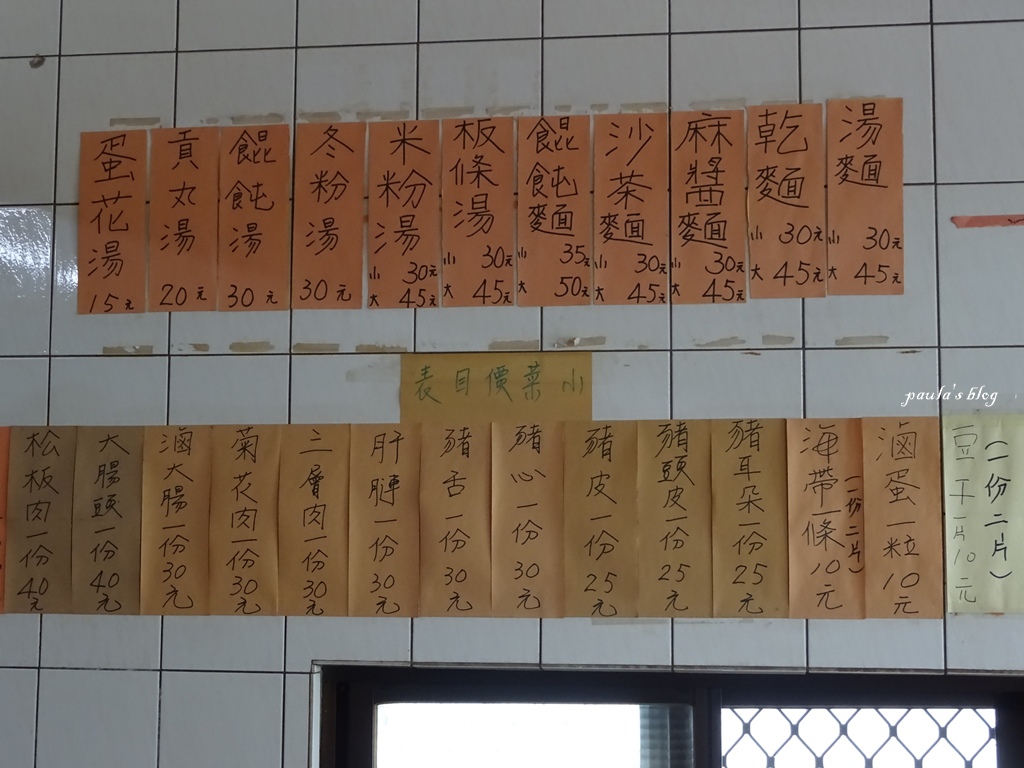 湯麵 小 30元 大 45元
乾麵 小 30元 大 45元
麻醬麵 小 30元 大 45元
沙茶麵 小 30元 大 45元
餛飩麵 小 35元 大 50元
板條湯 小 30元 大 45元
米粉湯 小 30元 大 45元
冬粉湯 30元
餛飩湯 30元
貢丸湯 20元
蛋花湯 15元
小菜價目表
豆干一片10元
(一份二片)
滷蛋一粒10元
海帶一條10元
(一份二片)
豬耳朵一份25元
豬頭皮一份25元
豬皮一份25元
豬心一份30元
豬舌一份30元
肝膔一份30元
三層肉一份30元
菊花肉一份30元
滷大腸一份30元
大腸頭一份40元
松板肉一份40元
paula's blog